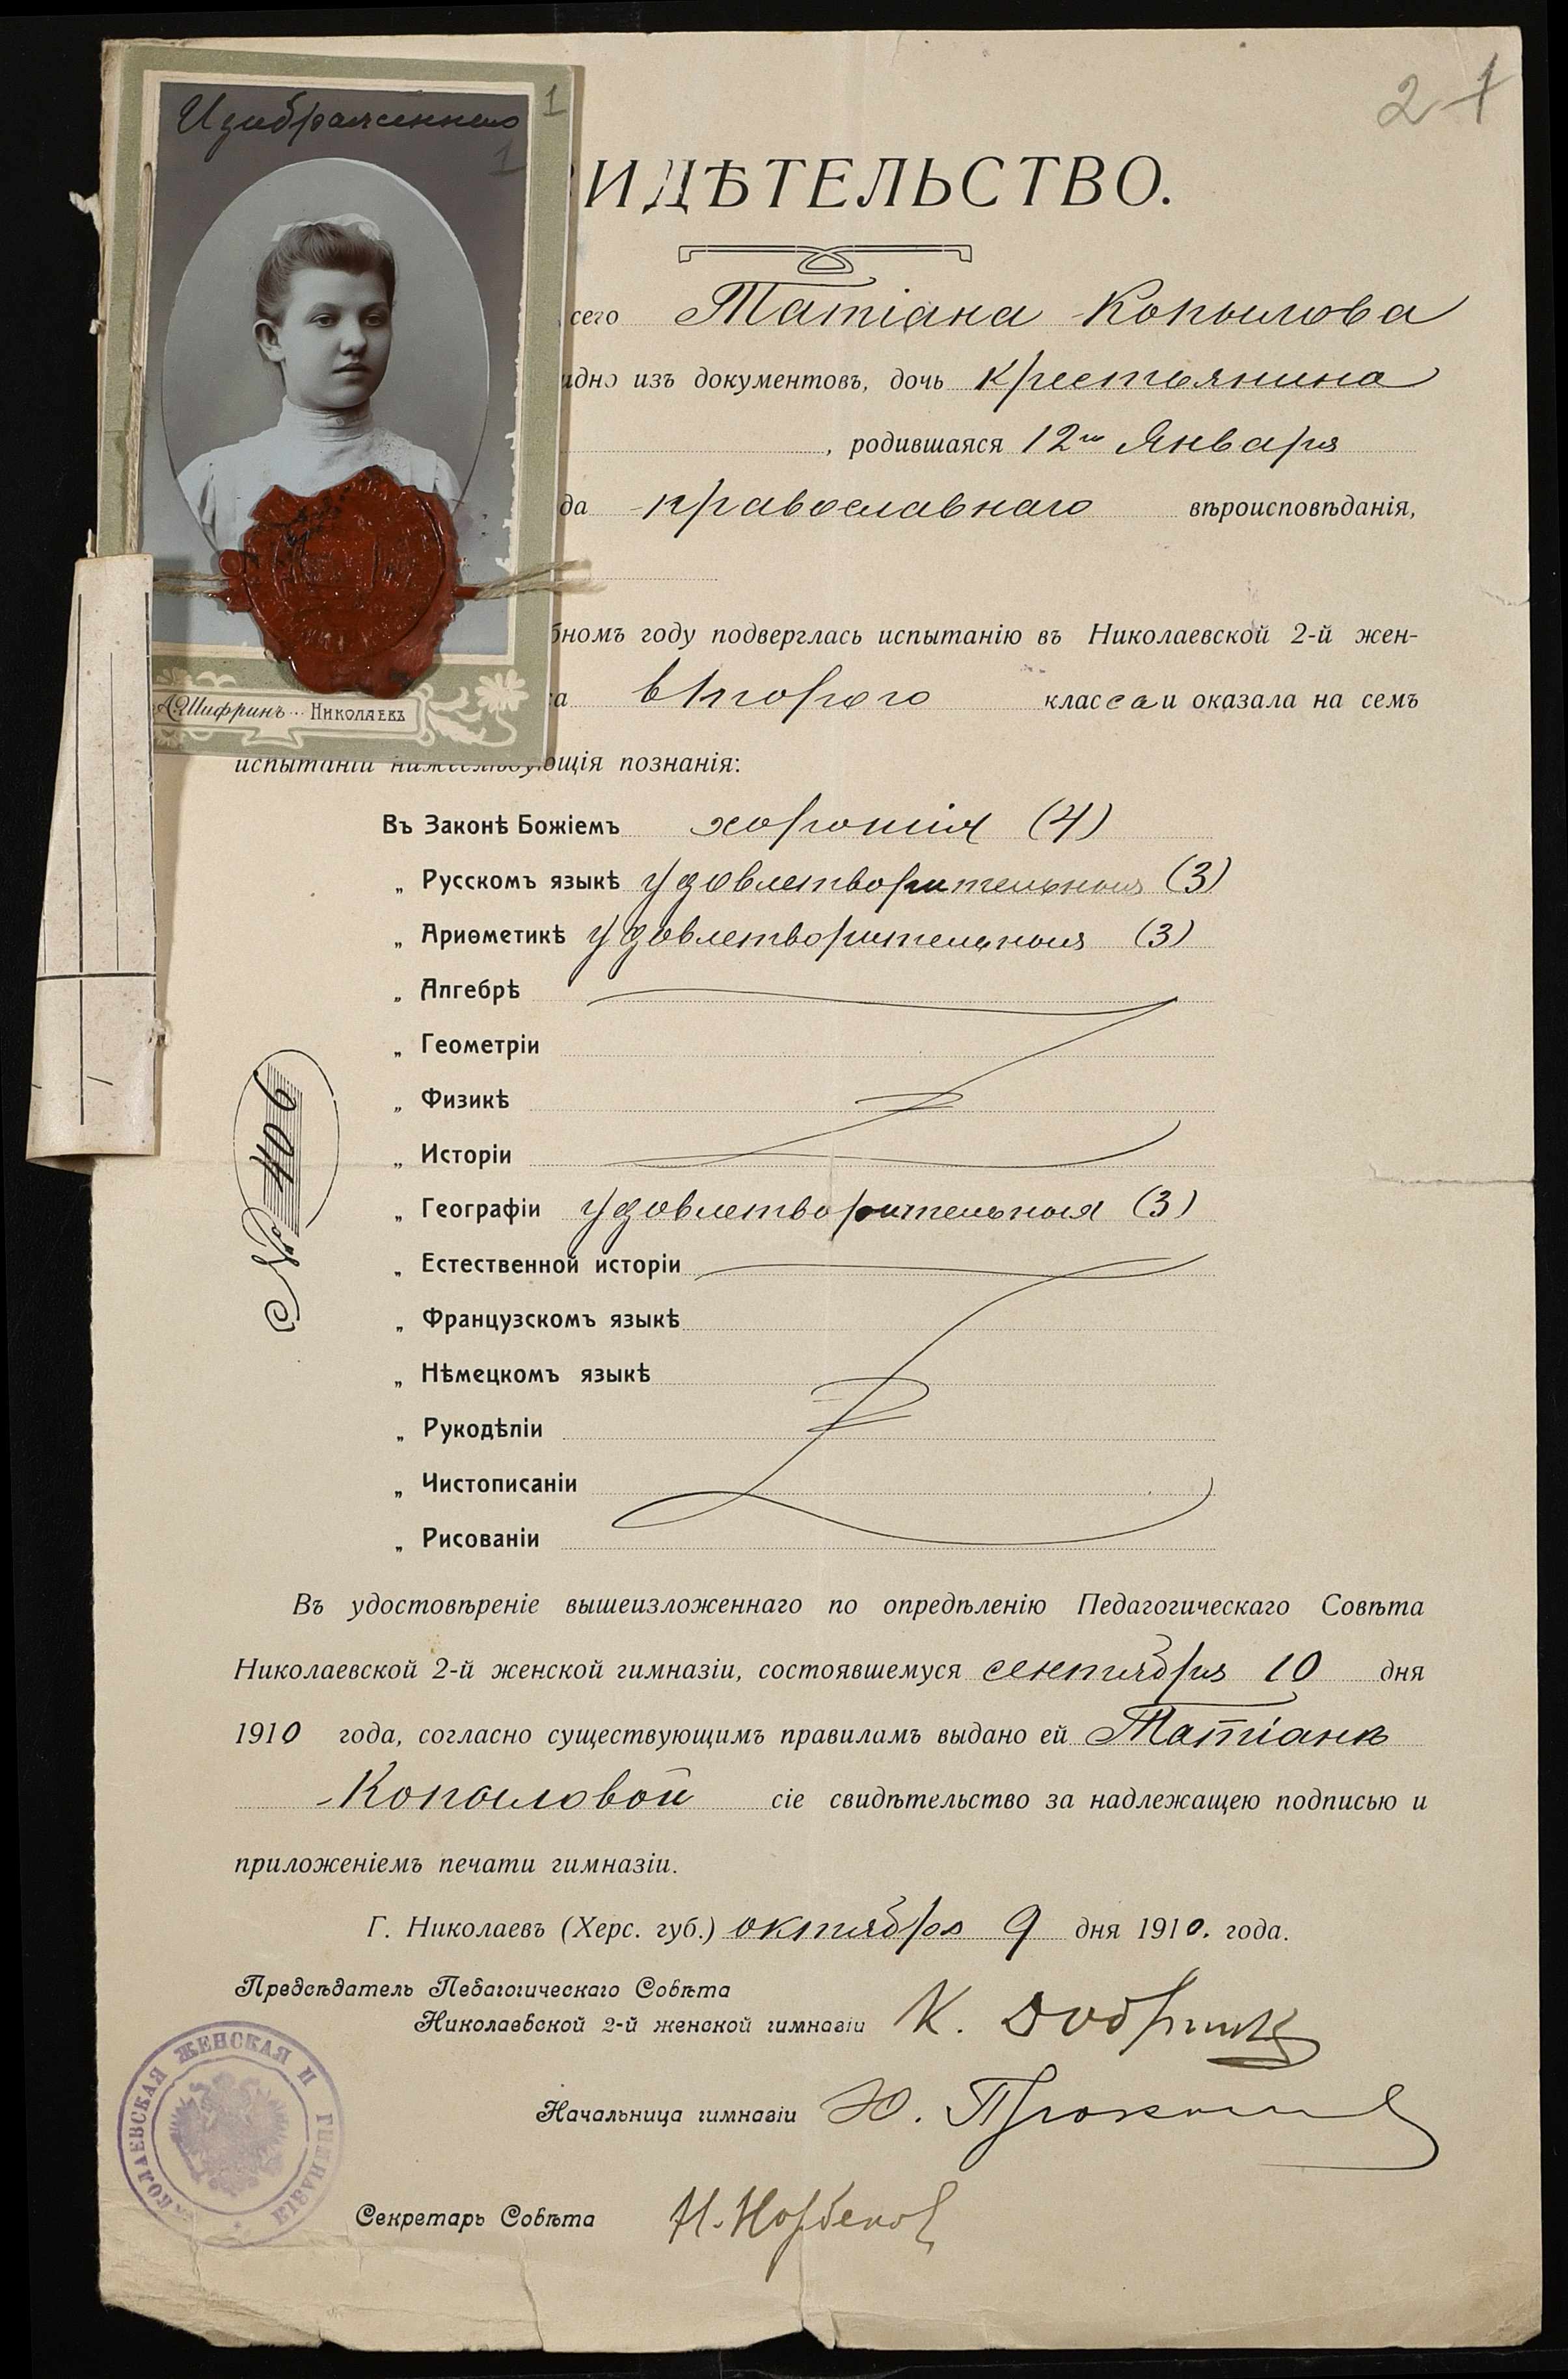 2 1
Изображенно
1
1
ИДѢТЕЛЬСТВО.
сего Татіана Копылова
идно изъ документовъ, дочь крестьянина
, родившаяся 12го Января
да православнаго вѣроисповѣданія,
бномъ году подверглась испытанію въ Николаевской 2-й жен-
а второго класса и оказала на семъ
А. Шифринъ.. Николаевъ
испытаніи нижеслѣдующія познанія:
Въ Законѣ Божіемъ хорошія (4)
„ Русскомъ языкѣ удовлетворительныя (3)
„ Ариѳметикѣ удовлетворительныя (3)
„ Алгебрѣ
„ Геометріи
„ Физикѣ
„ Исторіи
„ Географіи удовлетворительныя (3)
„ Естественной исторіи
„ Французскомъ языкѣ
„ Нѣмецкомъ языкѣ
„ Рукодѣліи
„ Чистописаніи
„ Рисованіи
№ 406
Въ удостовѣреніе вышеизложеннаго по опредѣленію Педагогическаго Совѣта
Николаевской 2-й женской гимназіи, состоявшемуся сентября 10 дня
1910 года, согласно существующимъ правиламъ выдано ей Татіанѣ
Копыловой сіе свидѣтельство за надлежащею подписью и
приложеніемъ печати гимназіи.
Г. Николаевъ (Херс. губ.) октября 9 дня 1910. года.
Предсѣдатель Педагогическаго Совѣта
Николаевской 2-й женской гимназіи К.
Начальница гимназіи Ю.
Секретарь Совѣта Н.
НИКОЛАЕВСКАЯ ЖЕНСКАЯ II ГИМНАЗІЯ